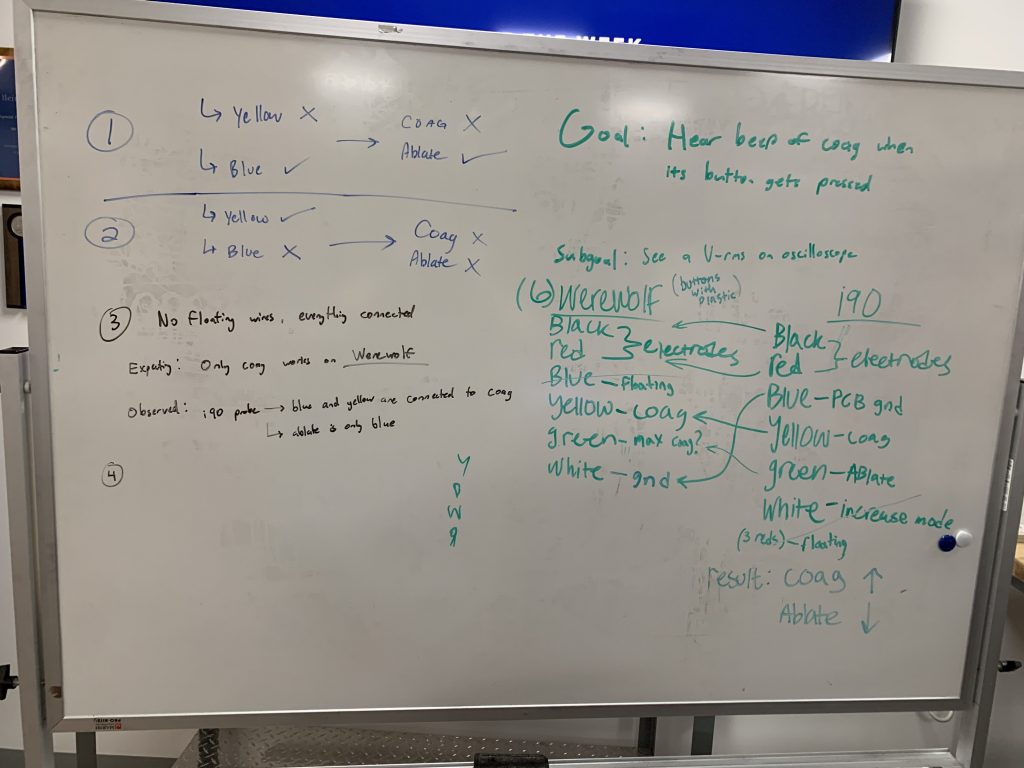 WEEK
① ↳ Yellow X → COAG X
Ablate ✓
↳ Blue ✓
② ↳ Yellow ✓ → Coag X
Ablate X
↳ Blue X
③ No Floating wires, everything connected
Expecting: Only coag works on Werewolf
Observed: i90 probe → blue and yellow are connected to coag
↳ ablate is only blue
④
Y
W
Goal: Hear beep of coag when
its button gets pressed
Subgoal: See a V-rms on oscilloscope
(6) Werewolf (buttons
with
plastic)
Black } electrodes
red
Blue - floating
Yellow - coag
green - max coag?
white - gnd
i90
Black } electrodes
red
Blue - PCB gnd
Yellow - coag
green - Ablate
White - increase mode
(3 reds) - floating
result: coag ↑
Ablate ↓